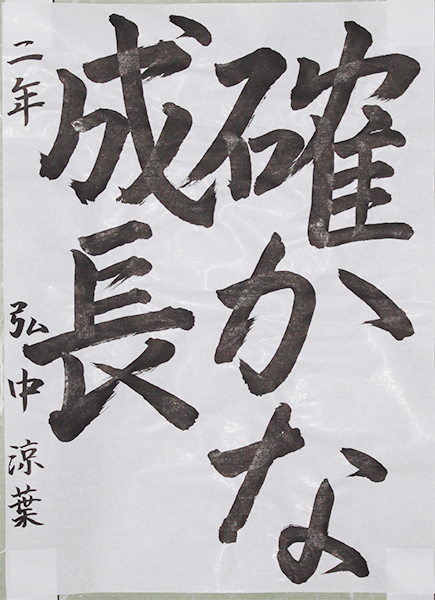 確かな
成長
二年 弘中涼葉